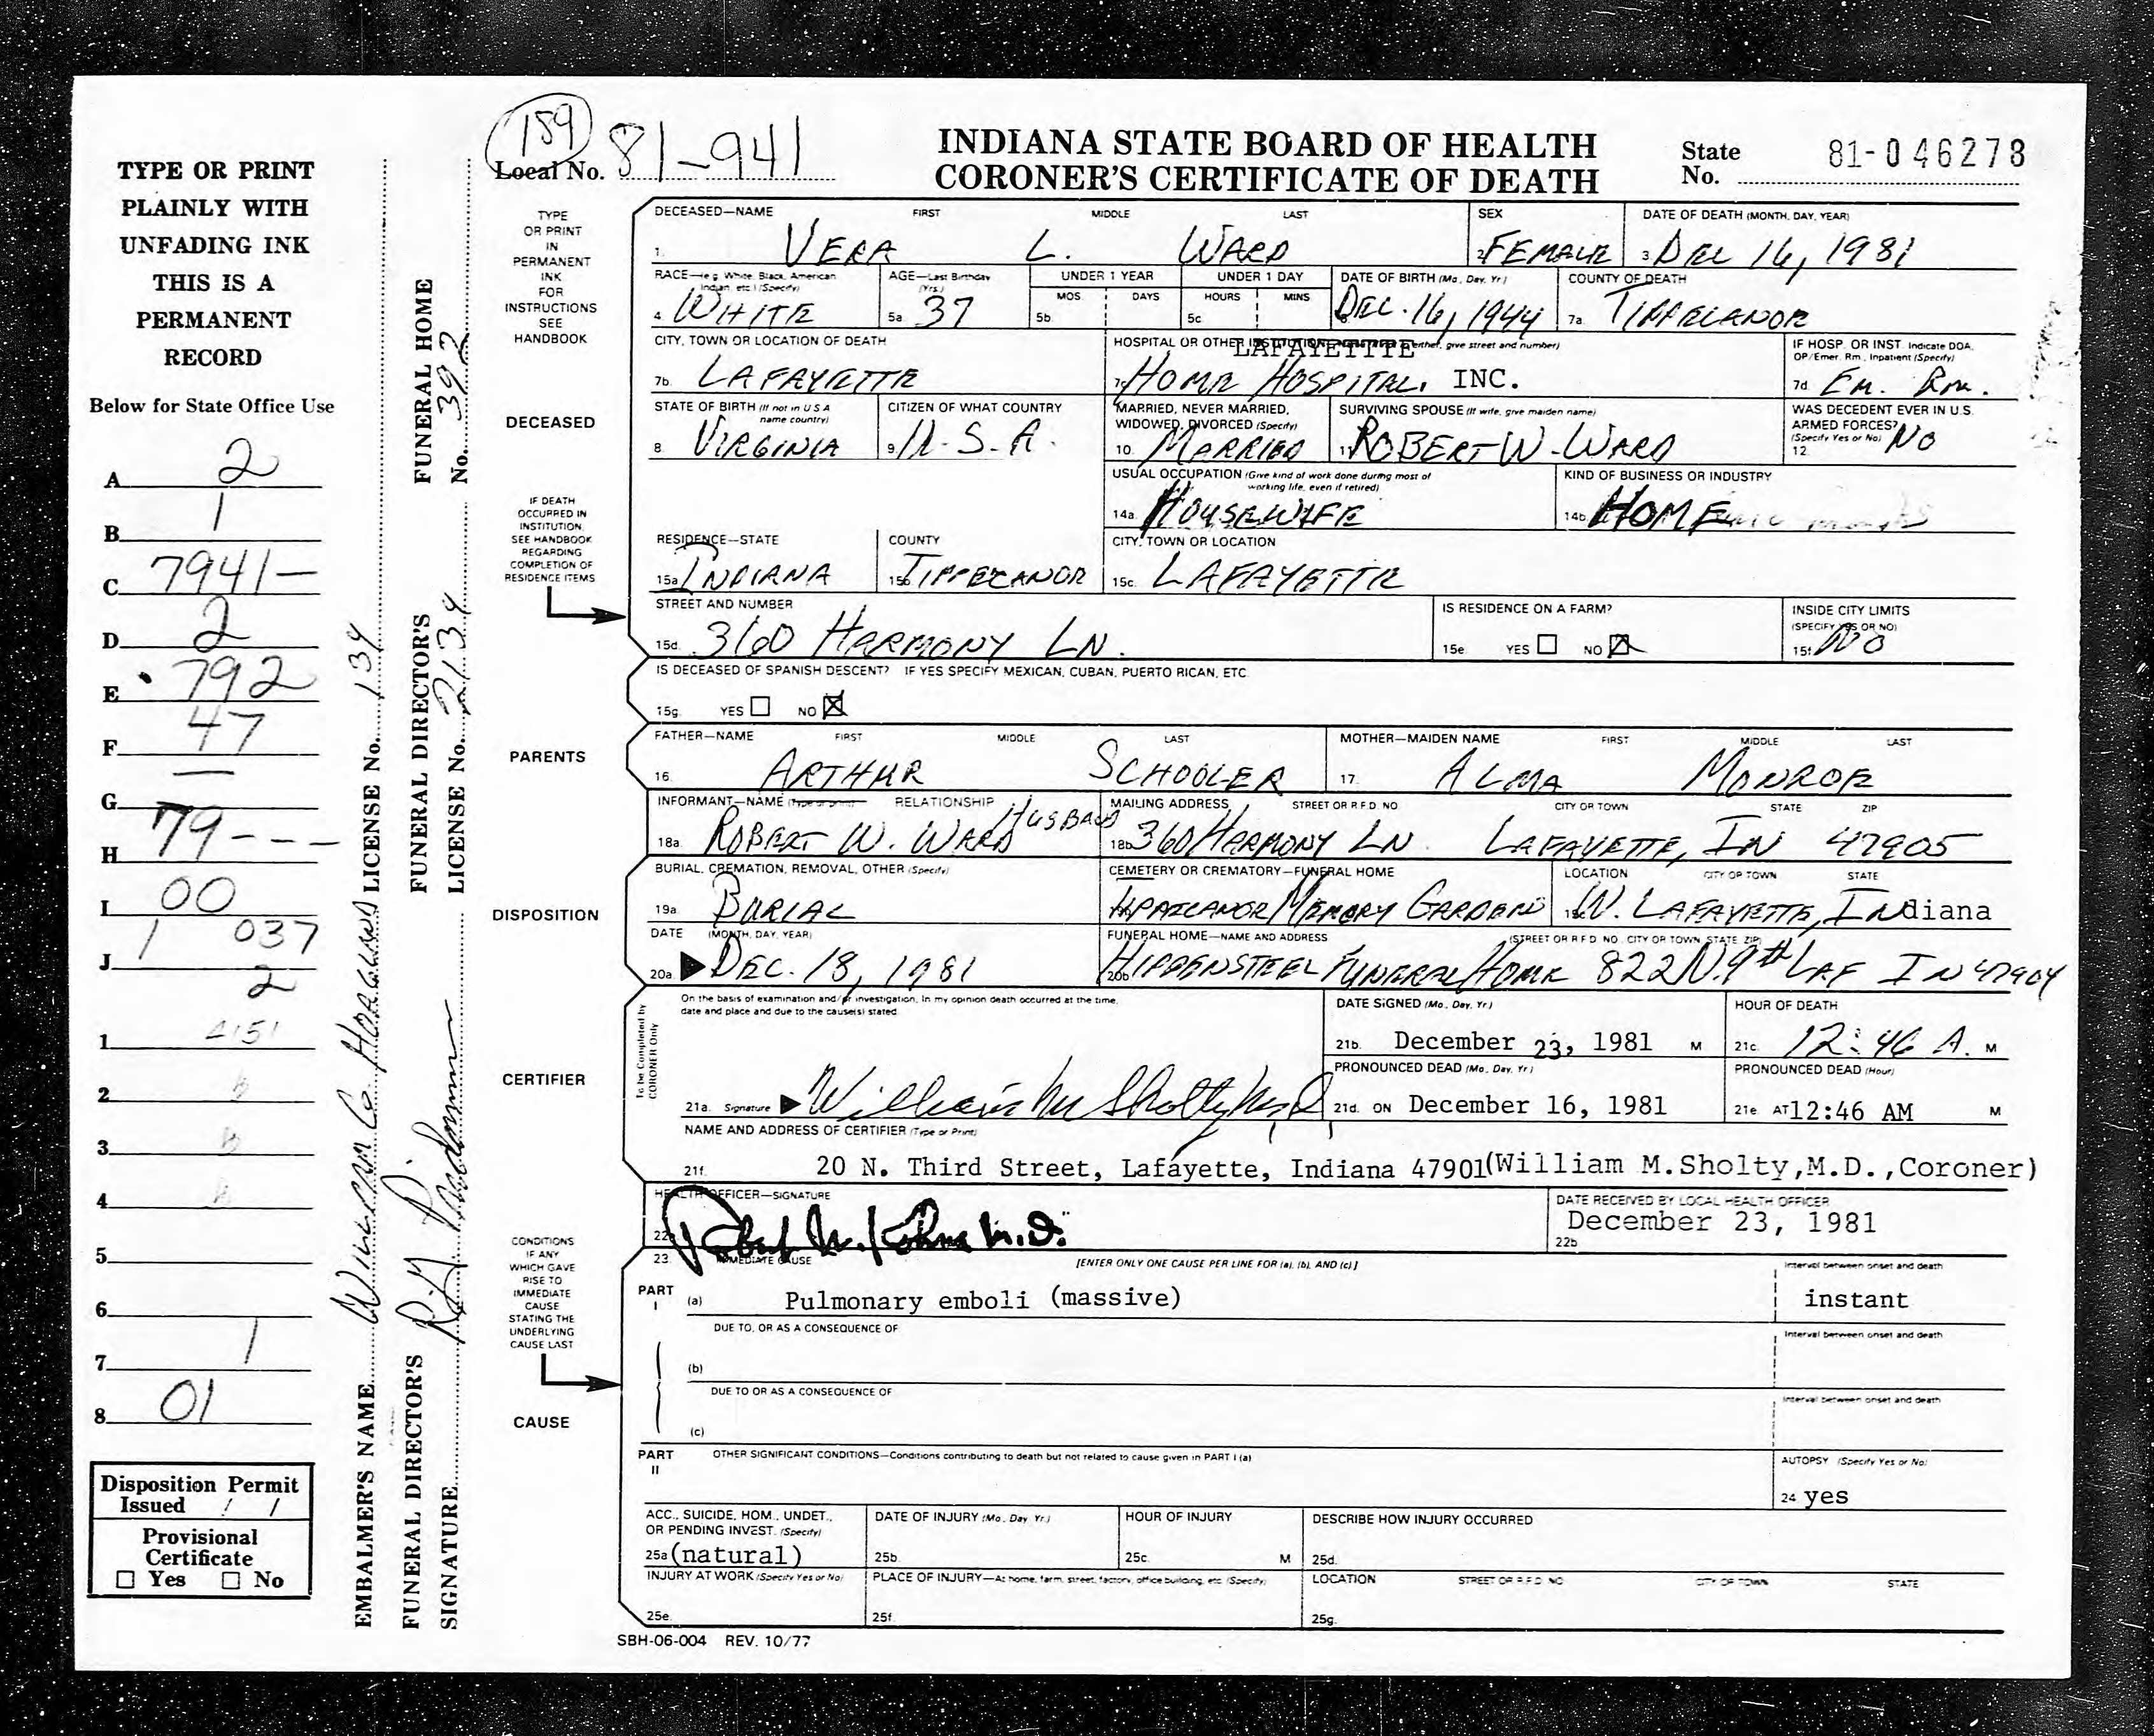 TYPE OR PRINT
PLAINLY WITH
UNFADING INK
THIS IS A
PERMANENT
RECORD
Below for State Office Use
A 2
B 1
C 7941-
D 2
E 792
F 47
G —
H 79---
I 00
1 037
J 2
1 4151
2
3
4
5
6
7 1
8 01
Disposition Permit
Issued / /
Provisional
Certificate
☐ Yes ☐ No
EMBALMER'S NAME LICENSE No. 134
FUNERAL DIRECTOR'S
SIGNATURE
FUNERAL DIRECTOR'S
LICENSE No. 2134
FUNERAL HOME
No. 392
159
Local No. 81-941
INDIANA STATE BOARD OF HEALTH
CORONER'S CERTIFICATE OF DEATH
State
No. 81-046278
TYPE
OR PRINT
IN
PERMANENT
INK
FOR
INSTRUCTIONS
SEE
HANDBOOK
DECEASED—NAME FIRST MIDDLE LAST
1. VERA L. WARD
SEX
2. FEMALE
DATE OF DEATH (MONTH, DAY, YEAR)
3. DEC 16, 1981
RACE—(e.g. White, Black, American
Indian, etc.) (Specify)
4. WHITE
AGE—Last Birthday
(Yrs.)
5a. 37
UNDER 1 YEAR
MOS. DAYS
5b.
UNDER 1 DAY
HOURS MINS
5c.
DATE OF BIRTH (Mo., Day, Yr.)
6. DEC. 16, 1944
COUNTY OF DEATH
7a. TIPPECANOE
CITY, TOWN OR LOCATION OF DEATH
7b. LAFAYETTE
HOSPITAL OR OTHER INSTITUTION either, give street and number)
LAFAYETTE
7c. HOME HOSPITAL, INC.
IF HOSP. OR INST. Indicate DOA,
OP/Emer. Rm., Inpatient (Specify)
7d. Em. Rm.
DECEASED
STATE OF BIRTH (If not in U.S.A.
name country)
8. VIRGINIA
CITIZEN OF WHAT COUNTRY
9. U.S.A.
MARRIED, NEVER MARRIED,
WIDOWED, DIVORCED (Specify)
10. MARRIED
SURVIVING SPOUSE (If wife, give maiden name)
11. ROBERT W. WARD
WAS DECEDENT EVER IN U.S.
ARMED FORCES?
(Specify Yes or No)
12. NO
IF DEATH
OCCURRED IN
INSTITUTION,
SEE HANDBOOK
REGARDING
COMPLETION OF
RESIDENCE ITEMS
USUAL OCCUPATION (Give kind of work done during most of
working life, even if retired)
14a. HOUSEWIFE
KIND OF BUSINESS OR INDUSTRY
14b. HOME
RESIDENCE—STATE
15a. INDIANA
COUNTY
15b. TIPPECANOE
CITY, TOWN OR LOCATION
15c. LAFAYETTE
STREET AND NUMBER
15d. 3160 HARMONY LN.
IS RESIDENCE ON A FARM?
15e. YES ☐ NO ☒
INSIDE CITY LIMITS
(SPECIFY YES OR NO)
15f. NO
IS DECEASED OF SPANISH DESCENT? IF YES SPECIFY MEXICAN, CUBAN, PUERTO RICAN, ETC.
15g. YES ☐ NO ☒
PARENTS
FATHER—NAME FIRST MIDDLE LAST
16. ARTHUR SCHOOLER
MOTHER—MAIDEN NAME FIRST MIDDLE LAST
17. ALMA MONROE
INFORMANT—NAME (Type or print) RELATIONSHIP HUSBAND
18a. ROBERT W. WARD
MAILING ADDRESS STREET OR R.F.D. NO. CITY OR TOWN STATE ZIP
18b. 3160 HARMONY LN. LAFAYETTE, IN 47905
DISPOSITION
BURIAL, CREMATION, REMOVAL, OTHER (Specify)
19a. BURIAL
CEMETERY OR CREMATORY—FUNERAL HOME
TIPPECANOE MEMORY GARDENS
LOCATION CITY OR TOWN STATE
19c. W. LAFAYETTE, INdiana
DATE (MONTH, DAY, YEAR)
20a. DEC. 18, 1981
FUNERAL HOME—NAME AND ADDRESS (STREET OR R.F.D. NO. CITY OR TOWN, STATE, ZIP)
20b. HIPPENSTEEL FUNERAL HOME 822 N. 9th LAF IN 47904
CERTIFIER
To be Completed by
CORONER Only
On the basis of examination and/or investigation, in my opinion death occurred at the time,
date and place and due to the cause(s) stated
21a. Signature William M Sholty M.D.
DATE SIGNED (Mo., Day, Yr.)
21b. December 23, 1981 M
HOUR OF DEATH
21c. 12:46 A. M
PRONOUNCED DEAD (Mo., Day, Yr.)
21d. ON December 16, 1981
PRONOUNCED DEAD (Hour)
21e. AT 12:46 AM M
NAME AND ADDRESS OF CERTIFIER (Type or Print)
21f. 20 N. Third Street, Lafayette, Indiana 47901(William M.Sholty,M.D.,Coroner)
HEALTH OFFICER—SIGNATURE
22a.
DATE RECEIVED BY LOCAL HEALTH OFFICER
December 23, 1981
22b.
CONDITIONS
IF ANY
WHICH GAVE
RISE TO
IMMEDIATE
CAUSE
STATING THE
UNDERLYING
CAUSE LAST
CAUSE
23. IMMEDIATE CAUSE [ENTER ONLY ONE CAUSE PER LINE FOR (a), (b), AND (c)]
PART
I
(a) Pulmonary emboli (massive)
Interval between onset and death
instant
DUE TO, OR AS A CONSEQUENCE OF
(b)
Interval between onset and death
DUE TO OR AS A CONSEQUENCE OF
(c)
Interval between onset and death
PART
II
OTHER SIGNIFICANT CONDITIONS—Conditions contributing to death but not related to cause given in PART I (a)
AUTOPSY (Specify Yes or No)
24 yes
ACC., SUICIDE, HOM., UNDET.,
OR PENDING INVEST. (Specify)
25a (natural)
DATE OF INJURY (Mo., Day, Yr.)
25b.
HOUR OF INJURY
25c. M
DESCRIBE HOW INJURY OCCURRED
25d.
INJURY AT WORK (Specify Yes or No)
25e.
PLACE OF INJURY—At home, farm, street, factory, office building, etc. (Specify)
25f.
LOCATION STREET OR R.F.D. NO. CITY OR TOWN STATE
25g.
SBH-06-004 REV. 10/77